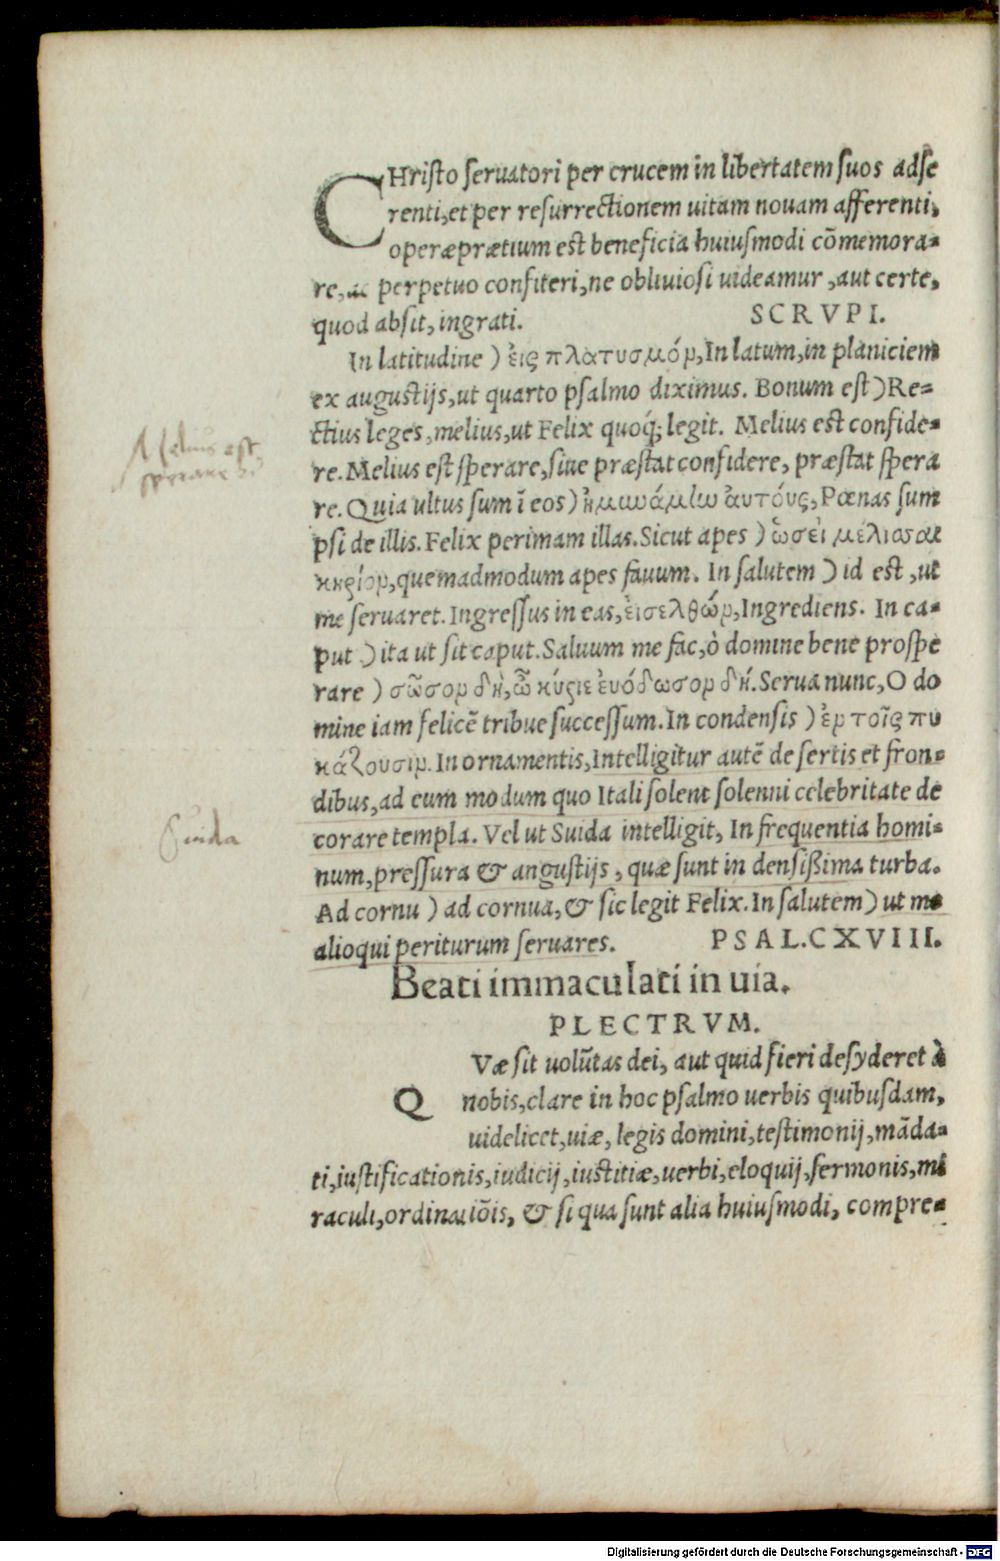 CHristo seruatori per crucem in libertatem suos adse
renti, et per resurrectionem uitam nouam afferenti,
operæprætium est beneficia huiusmodi cōmemora-
re, ac perpetuo confiteri, ne obliuiosi uideamur, aut certe,
quod absit, ingrati. SCRVPI.
In latitudine ) ἐις πλατυσμόν, In latum, in planiciem
ex augustijs, ut quarto psalmo diximus. Bonum est ) Re-
ctius leges, melius, ut Felix quoq; legit. Melius est confide-
re. Melius est sperare, siue præstat confidere, præstat spera
re. Quia ultus sum ī eos ) ἠμυνάμην ἀυτούς, Pœnas sum
psi de illis. Felix perimam illas. Sicut apes ) ὡσεὶ μέλισσαι
κηρίον, quemadmodum apes fauum. In salutem ) id est, ut
me seruaret. Ingressus in eas, ἐισελθών, Ingrediens. In ca-
put ) ita ut sit caput. Saluum me fac, ò domine bene prospe
rare ) σῶσον δὴ, ὦ κύριε ἐυόδωσον δή. Serua nunc, O do
mine iam felicē tribue successum. In condensis ) ἐν τοῖς πυ
κάζουσιν. In ornamentis, Intelligitur autē de sertis et fron-
dibus, ad eum modum quo Itali solent solenni celebritate de
corare templa. Vel ut Suida intelligit, In frequentia homi-
num, pressura & angustijs, quæ sunt in densißima turba.
Ad cornu ) ad cornua, & sic legit Felix. In salutem ) ut me
alioqui periturum seruares. PSAL. CXVIII.
Beati immaculati in uia.
PLECTRVM.
QVæ sit uolūtas dei, aut quid fieri desyderet à
nobis, clare in hoc psalmo uerbis quibusdam,
uidelicet, uiæ, legis domini, testimonij, māda-
ti, iustificationis, iudicij, iustitiæ, uerbi, eloquij, sermonis, mi
raculi, ordinatiōis, & si qua sunt alia huiusmodi, compre-
Melius est
sperare
Suida
Digitalisierung gefördert durch die Deutsche Forschungsgemeinschaft - DFG